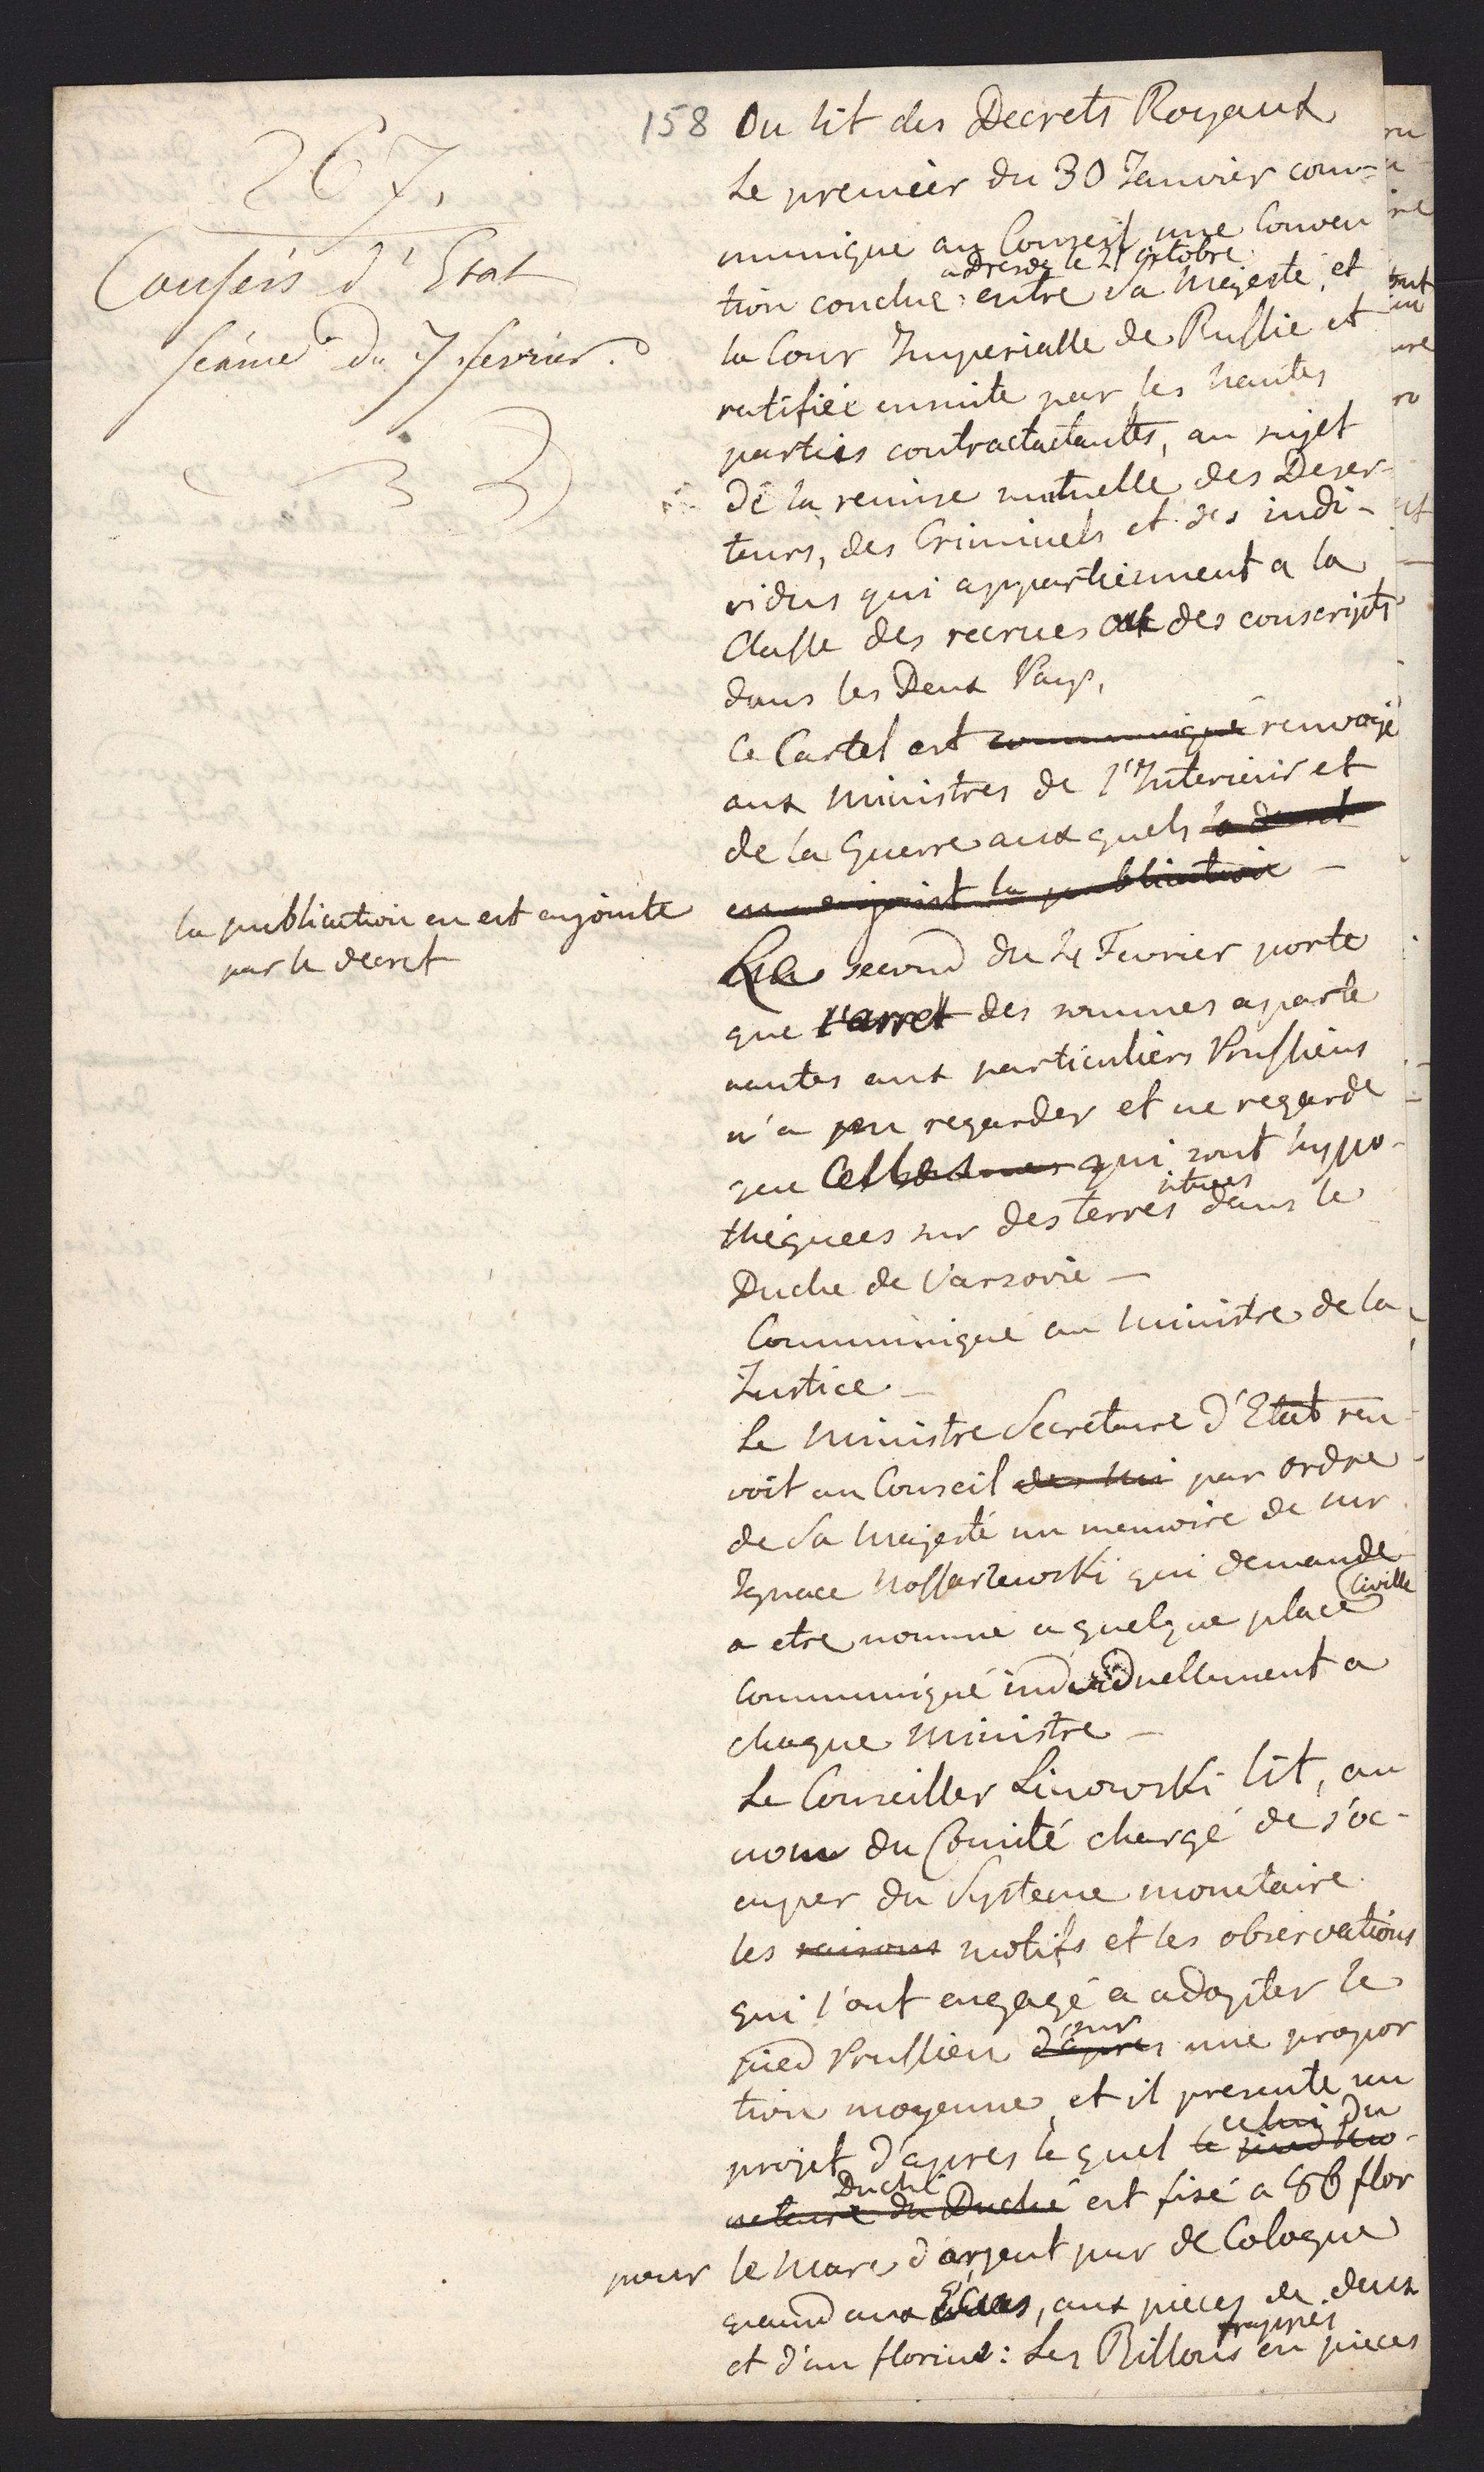 267.
Conseil d'Etat
séance du 7 fevrier.
158
On lit des Decrets Royaux
Le premier du 30 Janvier com-
munique au Conseil une Conven
a Dresde le 21 octobre
tion conclue entre Sa Majesté, et
la Cour Imperialle de Russie et
ratifiée ensuite par les hautes
parties contractactantes, au sujet
de la remise mutuelle des Deser-
teurs, des Criminels et des indi-
vidus qui appartiennent a la
Classe des recrues ou des conscripts
dans les Deux Pays,
Ce Cartel est communiqué renvoyé
aux Ministres de l'Interieur et
de la Guerre aux quels le decret
en enjoint la publication —
la publication en est enjointe
par le decret
Le second du 4 Fevrier porte
que l'arret des sommes aparte
nantes aux particuliers Prussiens
n'a pu regarder et ne regarde
que Celles qui sont hypo-
situees
thequees sur des terres dans le
Duche de Varsovie —
Communiqué au Ministre de la
Justice. —
Le Ministre Secretaire d'Etat ren
voit au Conseil par ordre
de Sa Majesté un memoire de Mr
Ignace Nossarzewski qui demande
Civille
a etre nommé a quelque place
Communiqué individuellement a
chaque Ministre —
Le Conseiller Linowski lit, au
nom du Comité chargé de s'oc-
cuper du Systeme monetaire.
les raisons motifs et les observations
qui l'ont engagé a adopter le
sur
pied Prussien d'apres une propor
tion moyenne, et il presente un
celui du
projet d'apres le quel le pied mo-
Duché
netaire du Duché est fixé a 86 flor
pour le Marc d'argent pur de Cologne
quand aux Ecus, aux pieces de deux
frappés
et d'un florins: Les Billons en pieces